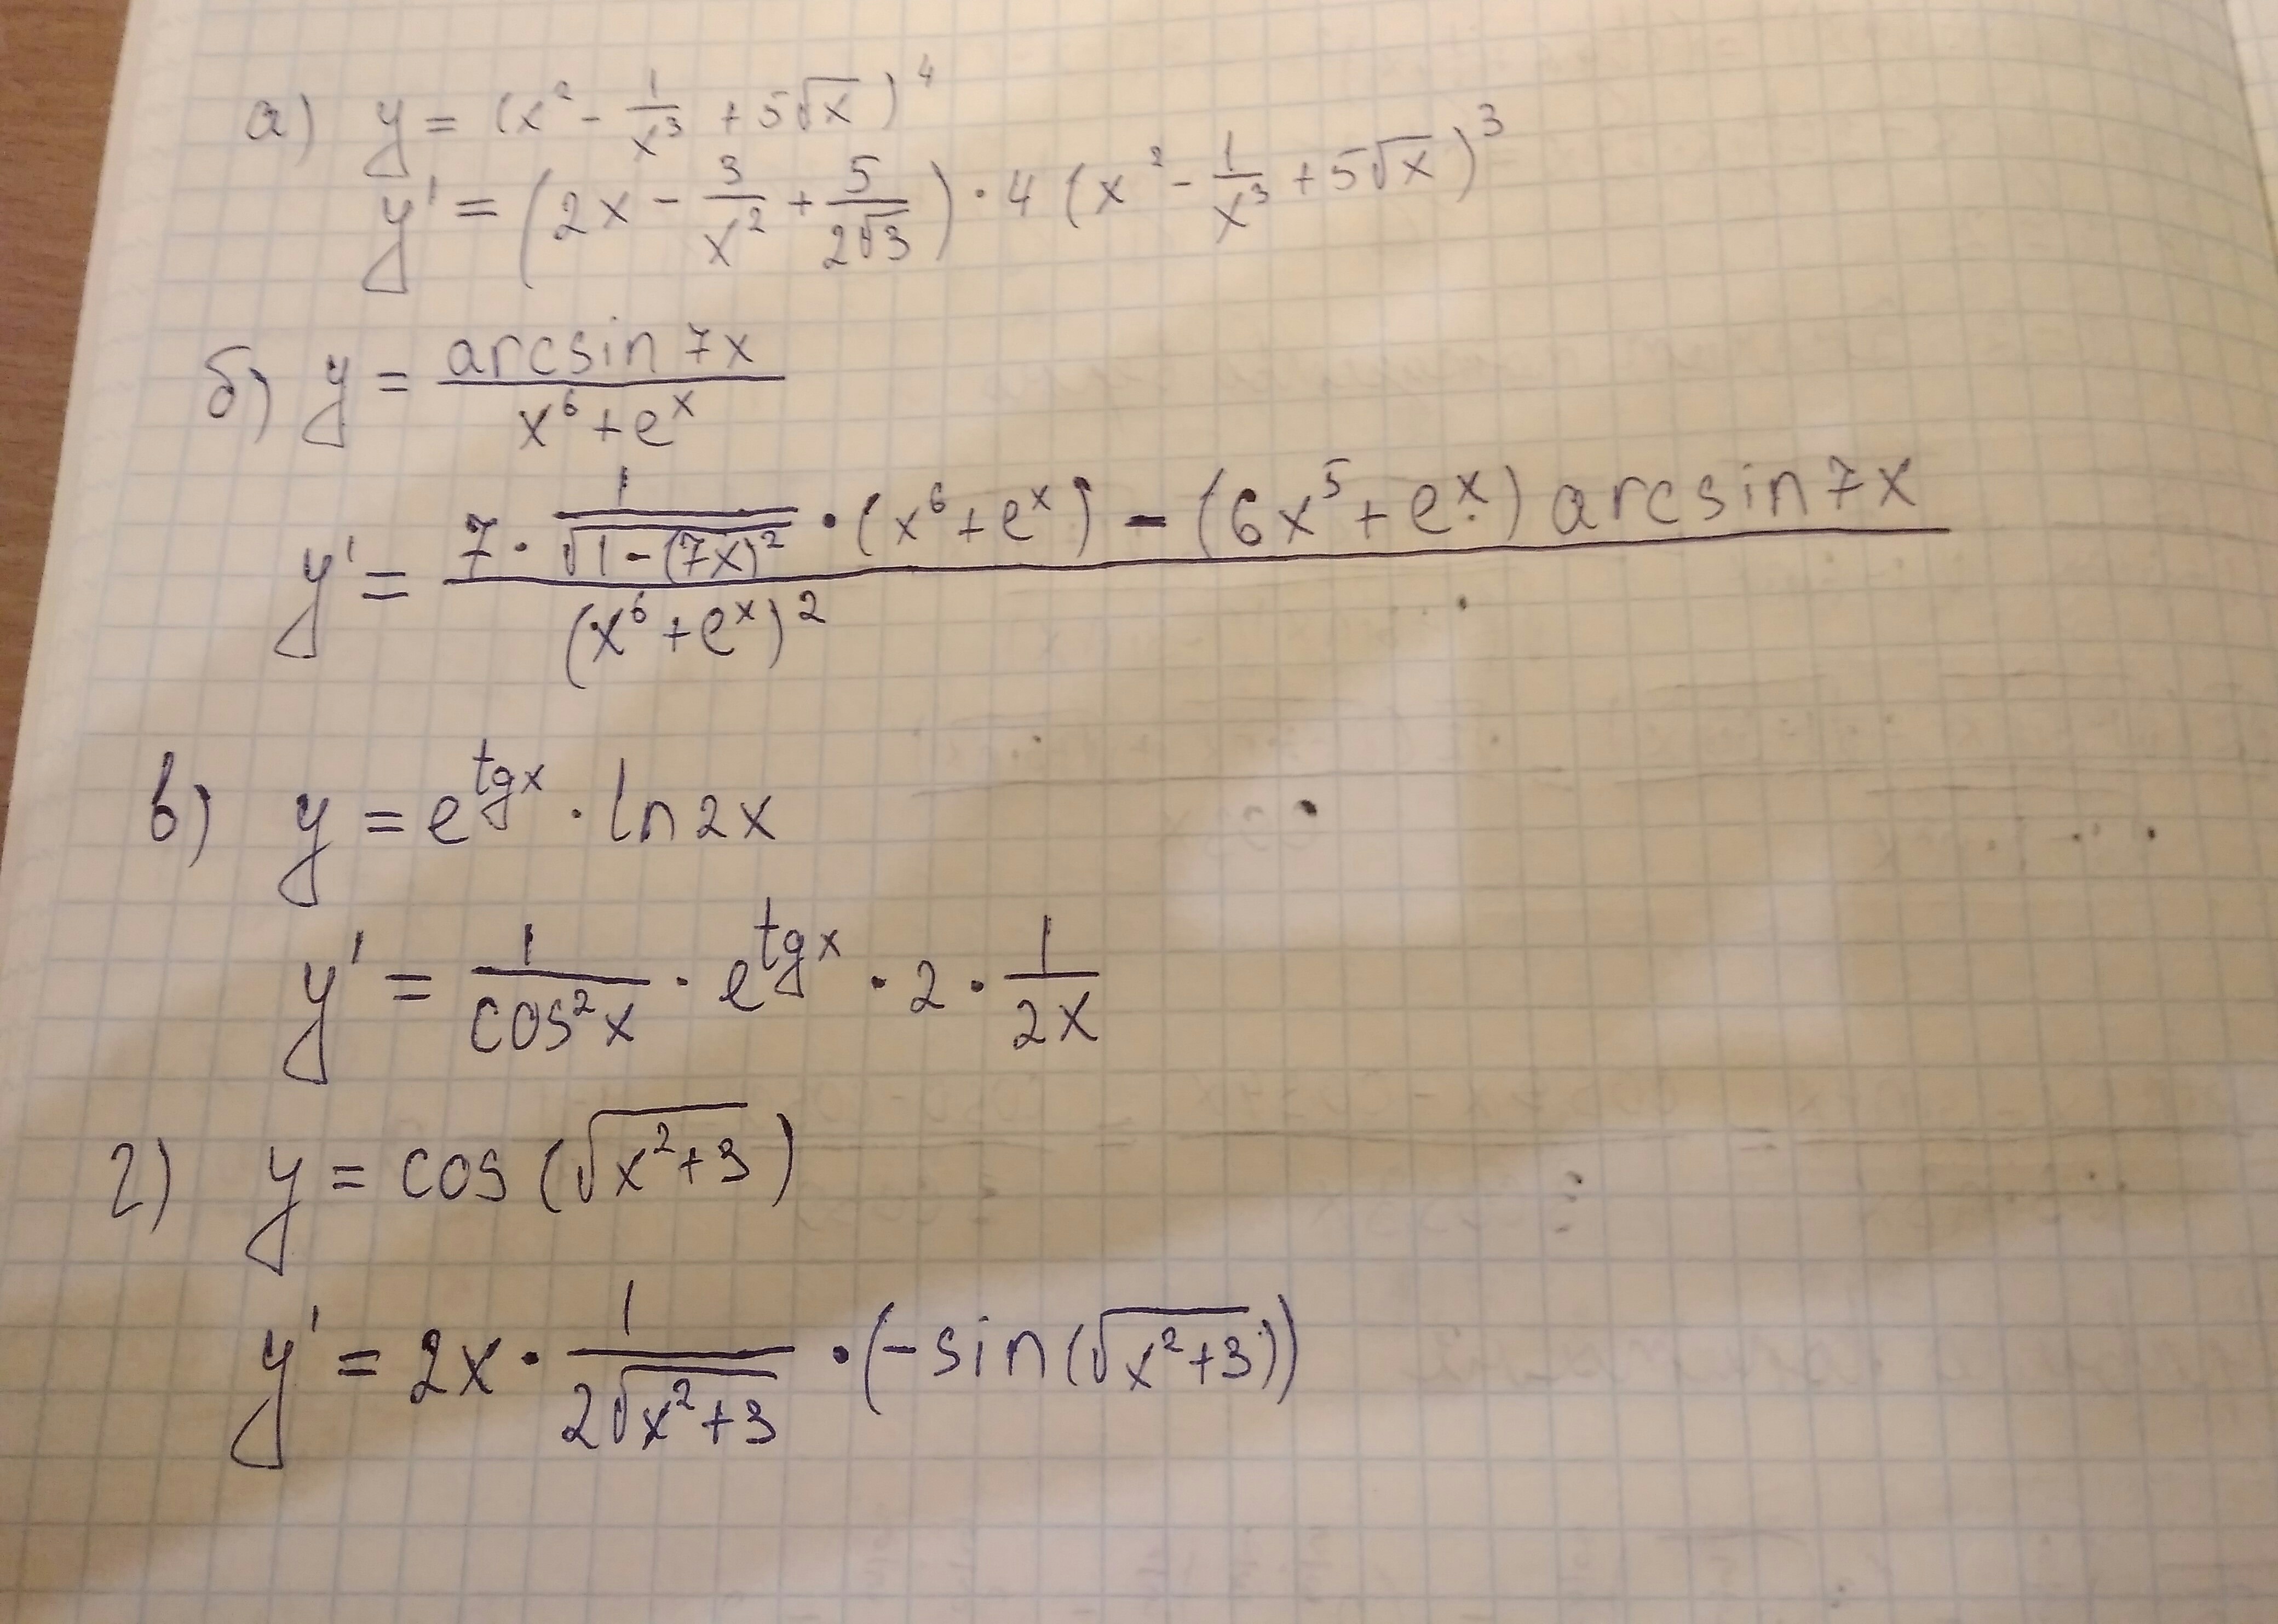 а) y = (x² - 1/x³ + 5√x)⁴
y' = (2x - 3/x² + 5/(2√3)) · 4(x² - 1/x³ + 5√x)³
б) y = arcsin 7x / (x⁶ + eˣ)
y' = (7 · 1/√(1 - (7x)²) · (x⁶ + eˣ) - (6x⁵ + eˣ) arcsin 7x) / (x⁶ + eˣ)²
в) y = e^(tg x) · ln 2x
y' = 1/cos²x · e^(tg x) · 2 · 1/(2x)
г) y = cos (√(x² + 3))
y' = 2x · 1/(2√(x² + 3)) · (-sin (√(x² + 3)))